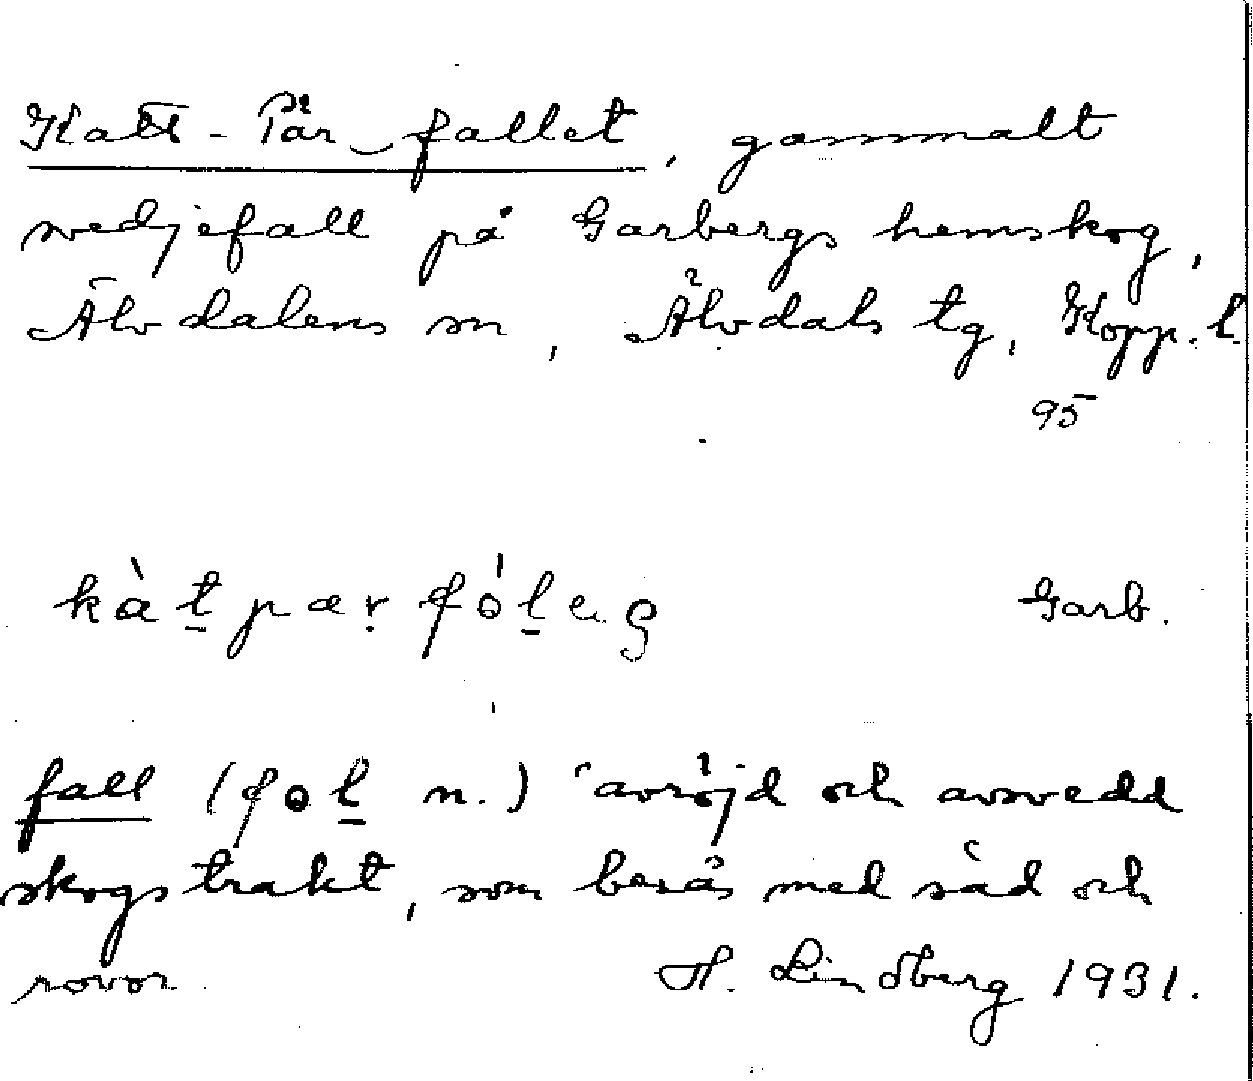 Katt-Pär-fallet, gammalt
svedjefall på Garbergs hemskog,
Älvdalens sn, Älvdals tg, Kopp. l.
95
kàt̠pæṛfól̠eŋ Garb.
fall (fol̠ n.) 'avröjd och avsvedd
skogstrakt, som besås med säd och
rovor H. Lindberg 1931.